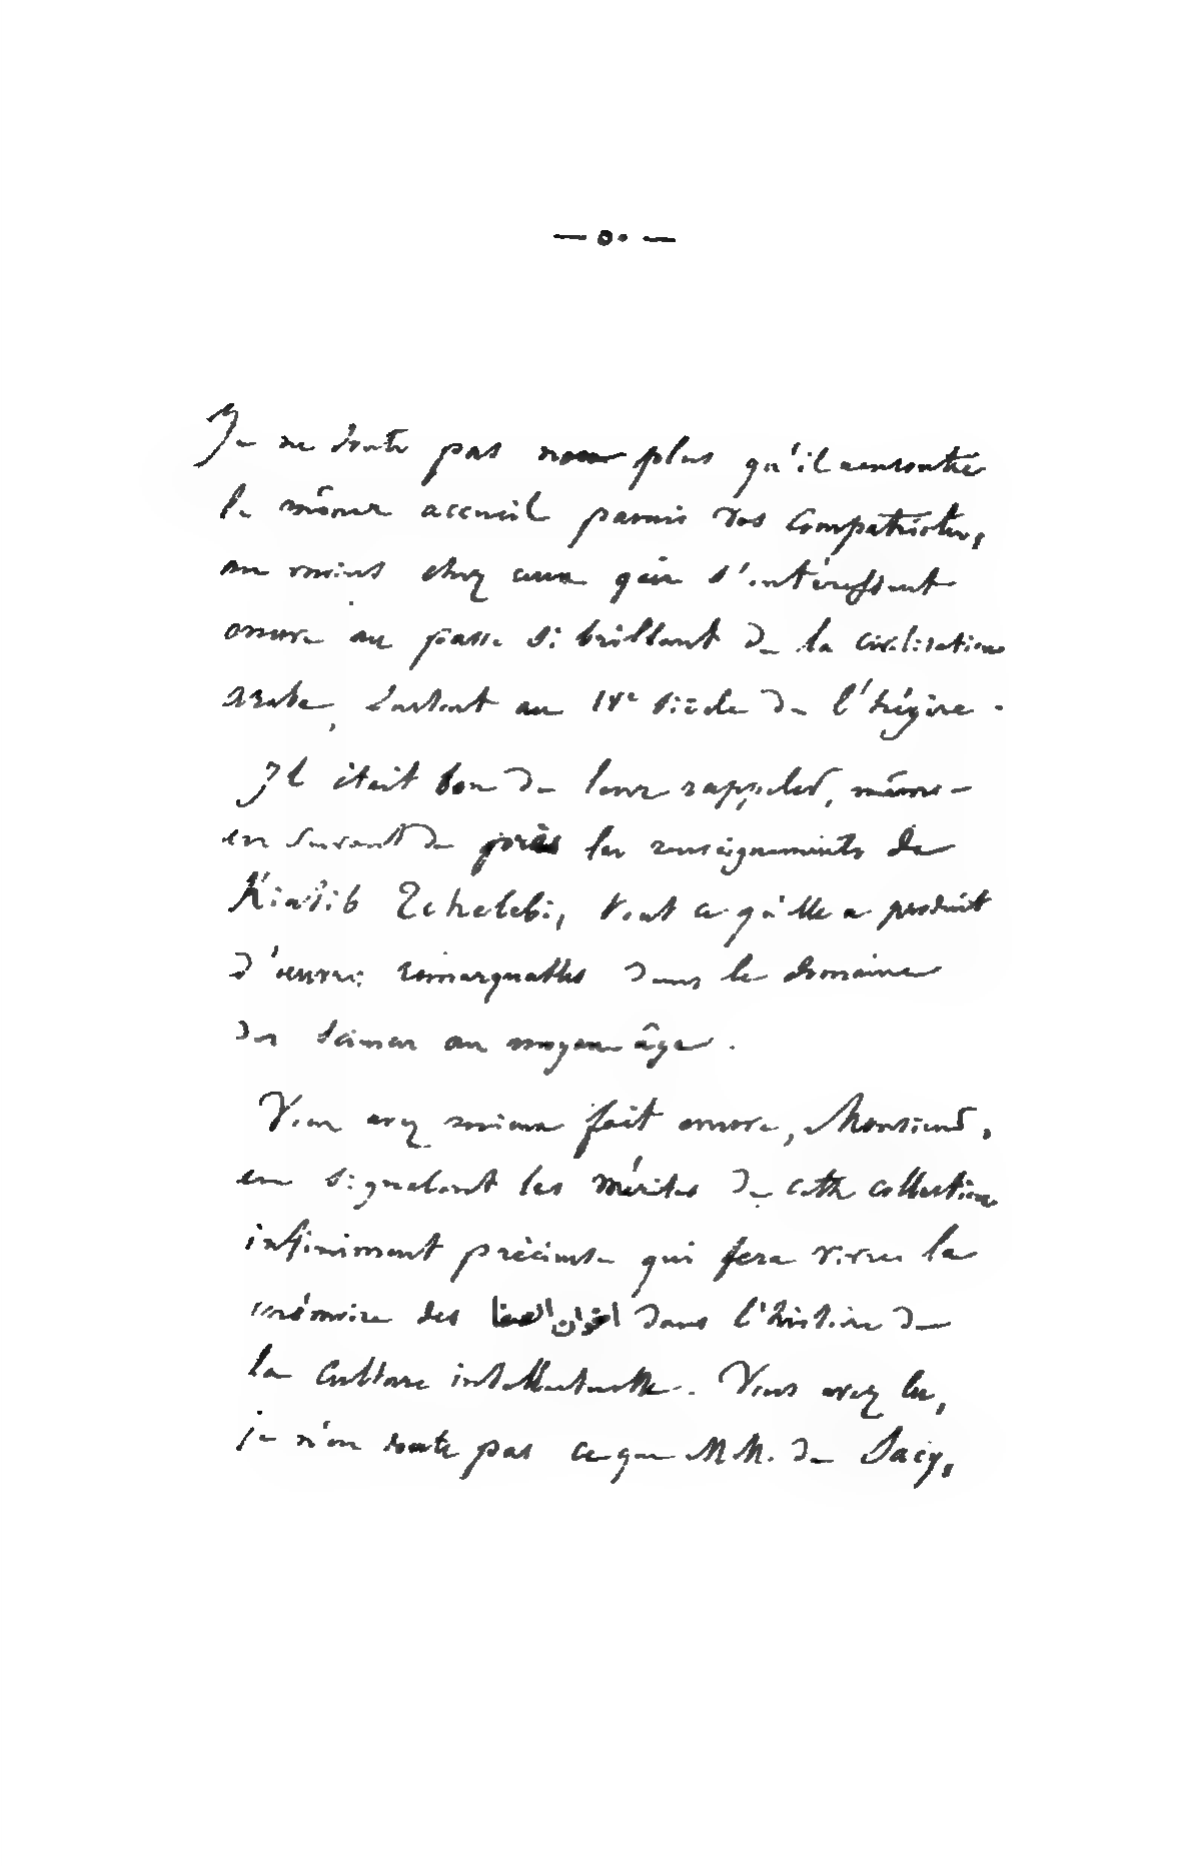 — ٥٠ —
Je ne doute pas non plus qu'il rencontre
le même accueil parmi vos compatriotes,
au moins chez ceux qui s'intéressent
encore au passé si brillant de la civilisation
arabe, surtout au IVe siècle de l'hégire.
Il était bon de leur rappeler, même
en suivant de près les renseignements de
Kiatib Tchelebi, tout ce qu'elle a produit
d'œuvres remarquables dans le domaine
des sciences au moyen âge.
Vous avez mieux fait encore, Monsieur,
en signalant les mérites de cette collection
infiniment précieuse qui fera vivre la
mémoire des اخوان الصفا dans l'histoire de
la culture intellectuelle. Vous avez lu,
je n'en doute pas ce que MM. de Sacy,